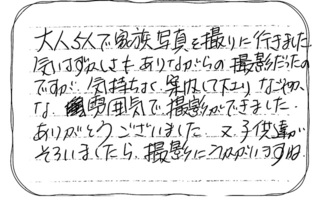 大人5人で家族写真を撮りに行きました
気はずかしさもありながらの撮影だったの
ですが、気持ちよく案内して下さりなごやか
な雰囲気で撮影ができました。
ありがとうございました 又子供達が
そろいましたら、撮影にうかがいますね